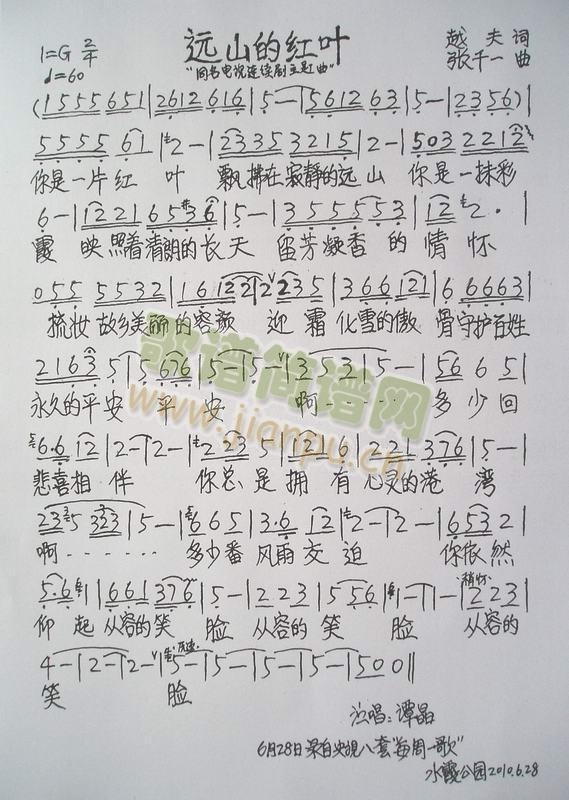 远山的红叶
1=G 2/4
♩=60
"同名电视连续剧主题曲"
越夫 词
张千一 曲
(1555651|2612616|5-|561263|5-|2356)
5555 61|2-|22335 3215|2-|503 2212
你是一片红 叶 飘拂在寂静的远山 你是一抹彩
6-|1221 6536|5-|355553|12 2·
霞 映照着清朗的长天 留芳凝香的情怀
055 5532|161221|2 2235|366121|6 6663|
梳妆故乡美丽的容颜 迎霜化雪的傲骨守护百姓
2163 5|5 676|5-|5-|3 5 3 1|5-|56 6 5|
永久的平安 平 安 啊······ 多少回
6·6 12|2-|2-|2 23 5|1216|221 376|5-|
悲喜相伴 你总是拥有心灵的港 湾
235 323|5-|6 6 5|3·6 12|2-|2-|653 2|
啊······ 多少番风雨交迫 你依然
5·6 1|661 376|5-|223|5 56|1-|1-|223|
稍怀
仰 起 从容的笑 脸 从容的笑 脸 从容的
4-|2-|2-|5-|5-|5-|5-|500‖
笑 脸
演唱:谭晶
6月28日录自央视八套"每周一歌"
水霞公园2010.6.28
歌谱简谱网
www.jianpu.cn